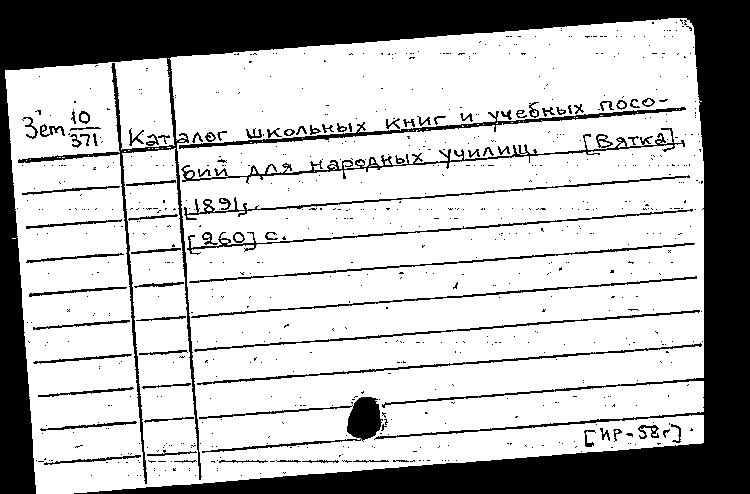 Зет 10/371 Каталог школьных книг и учебных посо-
бий для народных училищ. [Вятка],
[1891].
[260] с.
[ИР-58г]